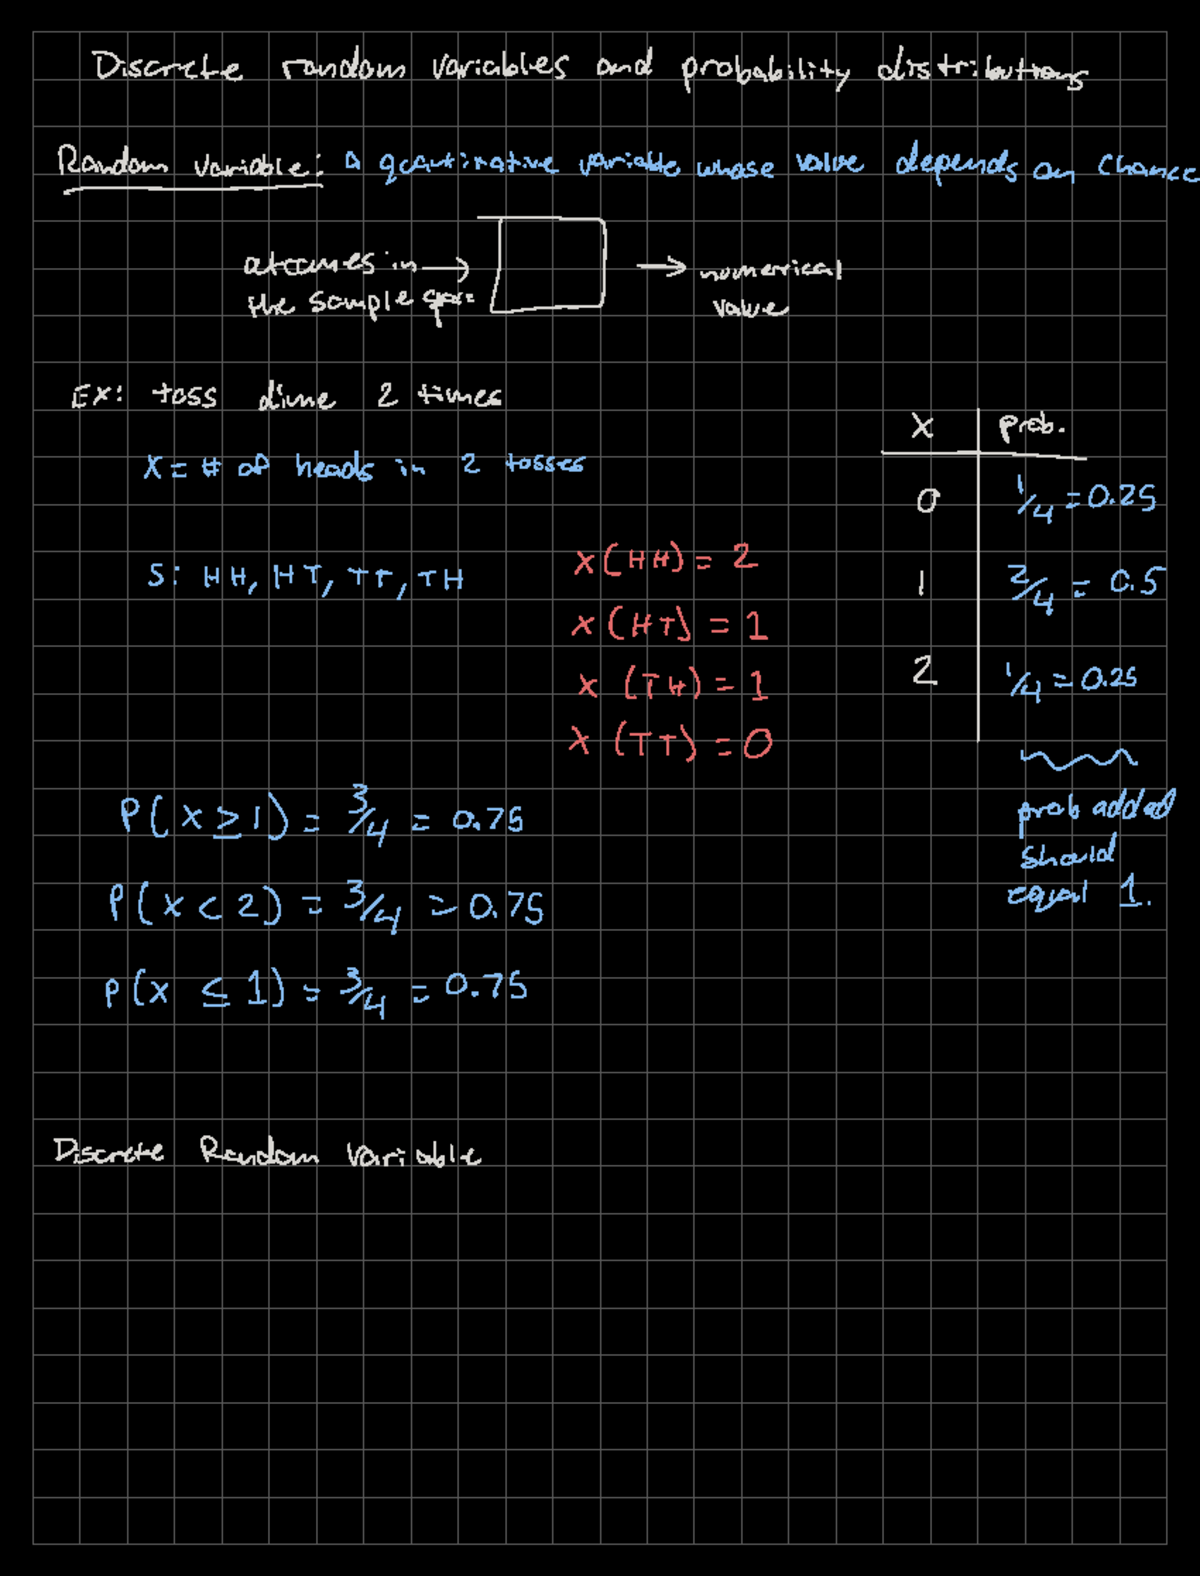 Discrete random variables and probability distributions
Random variable: a quantitative variable whose value depends on chance
outcomes in → → numerical
the sample space value
Ex: toss dime 2 times
X = # of heads in 2 tosses
S: HH, HT, TT, TH
X (HH) = 2
X (HT) = 1
X (TH) = 1
X (TT) = 0
X prob.
0 1/4 = 0.25
1 2/4 = 0.5
2 1/4 = 0.25
prob added
should
equal 1.
P( X ≥ 1) = 3/4 = 0.75
P( X < 2) = 3/4 = 0.75
P(X ≤ 1) = 3/4 = 0.75
Discrete Random Variable